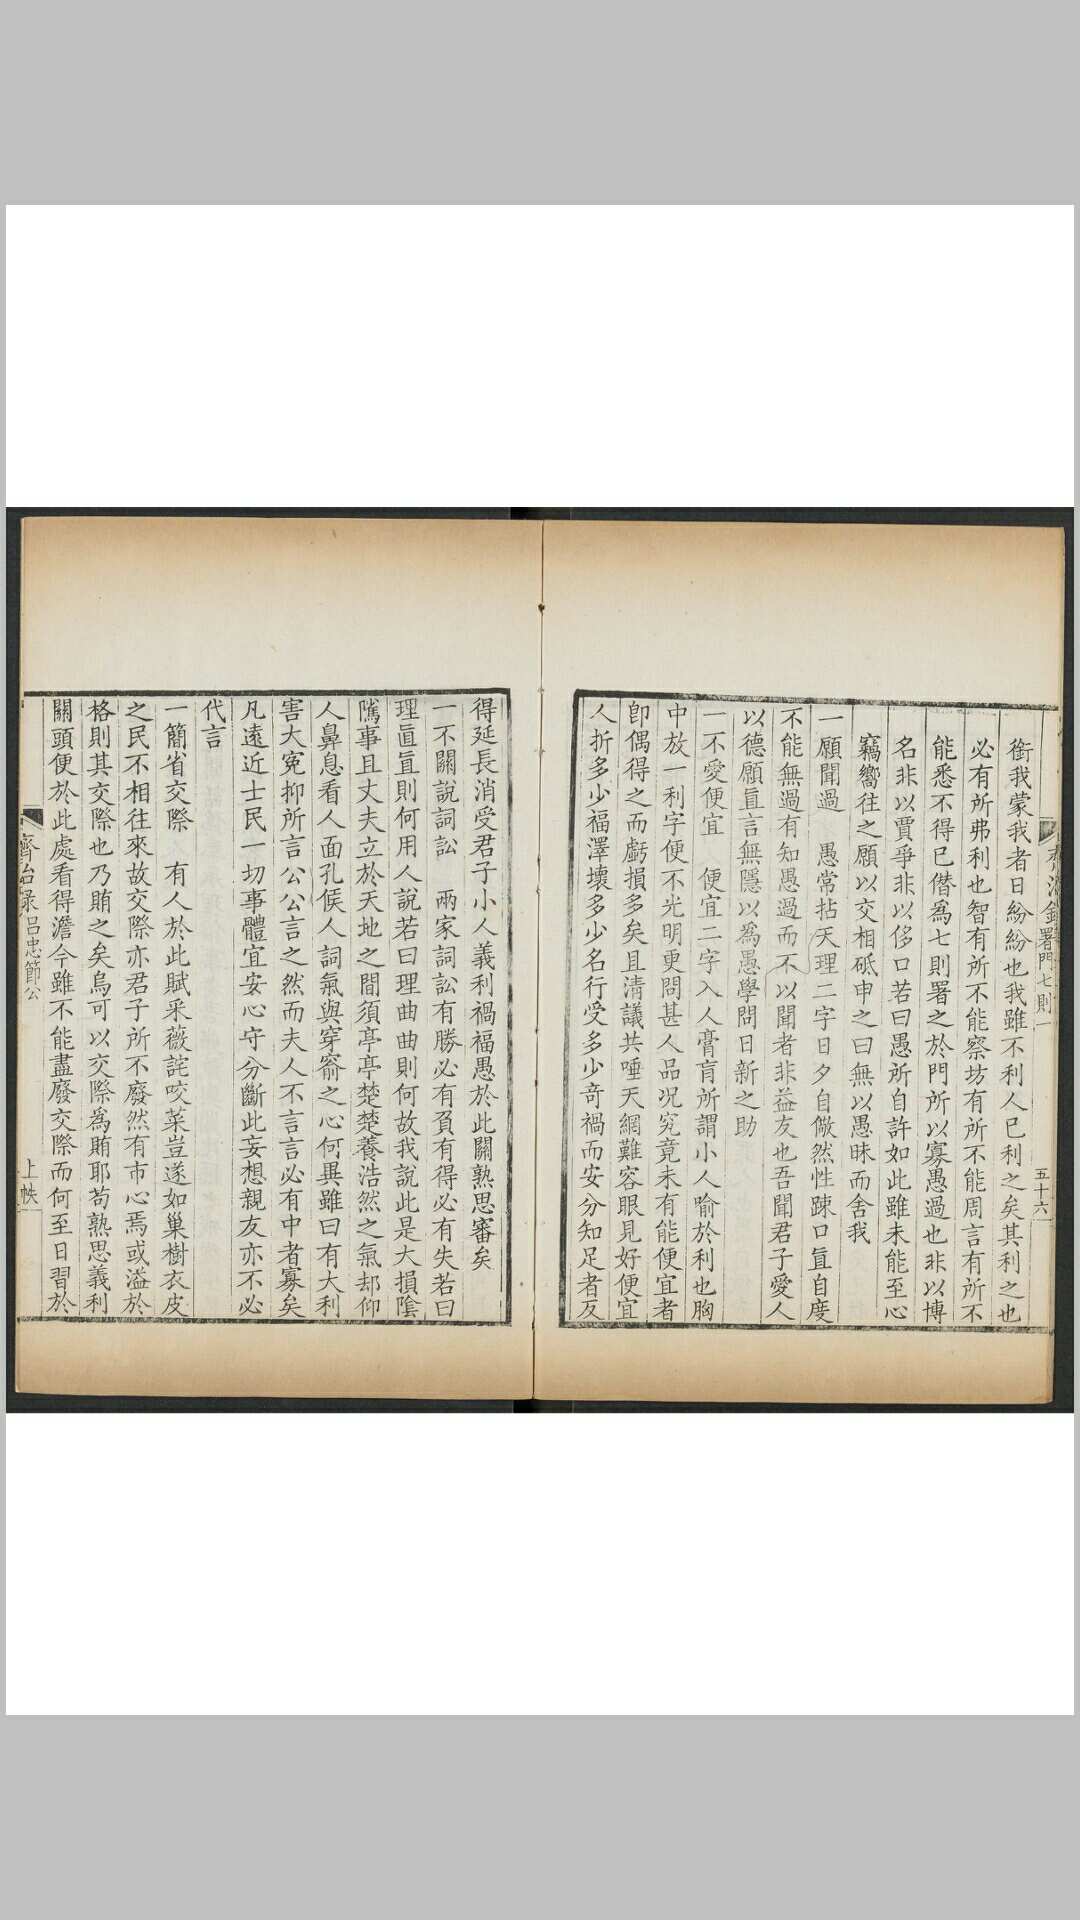 齊治錄署門七則一
五十六
銜我蒙我者日紛紛也我雖不利人已利之矣其利之也
必有所弗利也智有所不能察坊有所不能周言有所不
能悉不得已僭為七則署之於門所以寡愚過也非以博
名非以賈爭非以侈口若曰愚所自許如此雖未能至心
竊嚮往之願以交相砥申之曰無以愚昧而舍我
一願聞過　愚常拈天理二字日夕自儆然性踈口直自度
不能無過有知愚過而不以聞者非益友也吾聞君子愛人
以德願直言無隱以為愚學問日新之助
一不愛便宜　便宜二字入人膏肓所謂小人喻於利也胸
中放一利字便不光明更問甚人品况究竟未有能便宜者
卽偶得之而虧損多矣且清議共唾天網難容眼見好便宜
人折多少福澤壞多少名行受多少奇禍而安分知足者反
得延長消受君子小人義利禍福愚於此關熟思審矣
一不關說詞訟　兩家詞訟有勝必有負有得必有失若曰
理直直則何用人說若曰理曲曲則何故我說此是大損陰
隲事且丈夫立於天地之間須亭亭楚楚養浩然之氣却仰
人鼻息看人面孔俟人詞氣與穿窬之心何異雖曰有大利
害大寃抑所言公公言之然而夫人不言言必有中者寡矣
凡遠近士民一切事體宜安心守分斷此妄想親友亦不必
代言
一簡省交際　有人於此賦采薇詫咬菜豈遂如巢樹衣皮
之民不相往來故交際亦君子所不廢然有市心焉或溢於
格則其交際也乃賄之矣烏可以交際為賄耶苟熟思義利
關頭便於此處看得澹今雖不能盡廢交際而何至日習於
齊治録呂忠節公
上帙